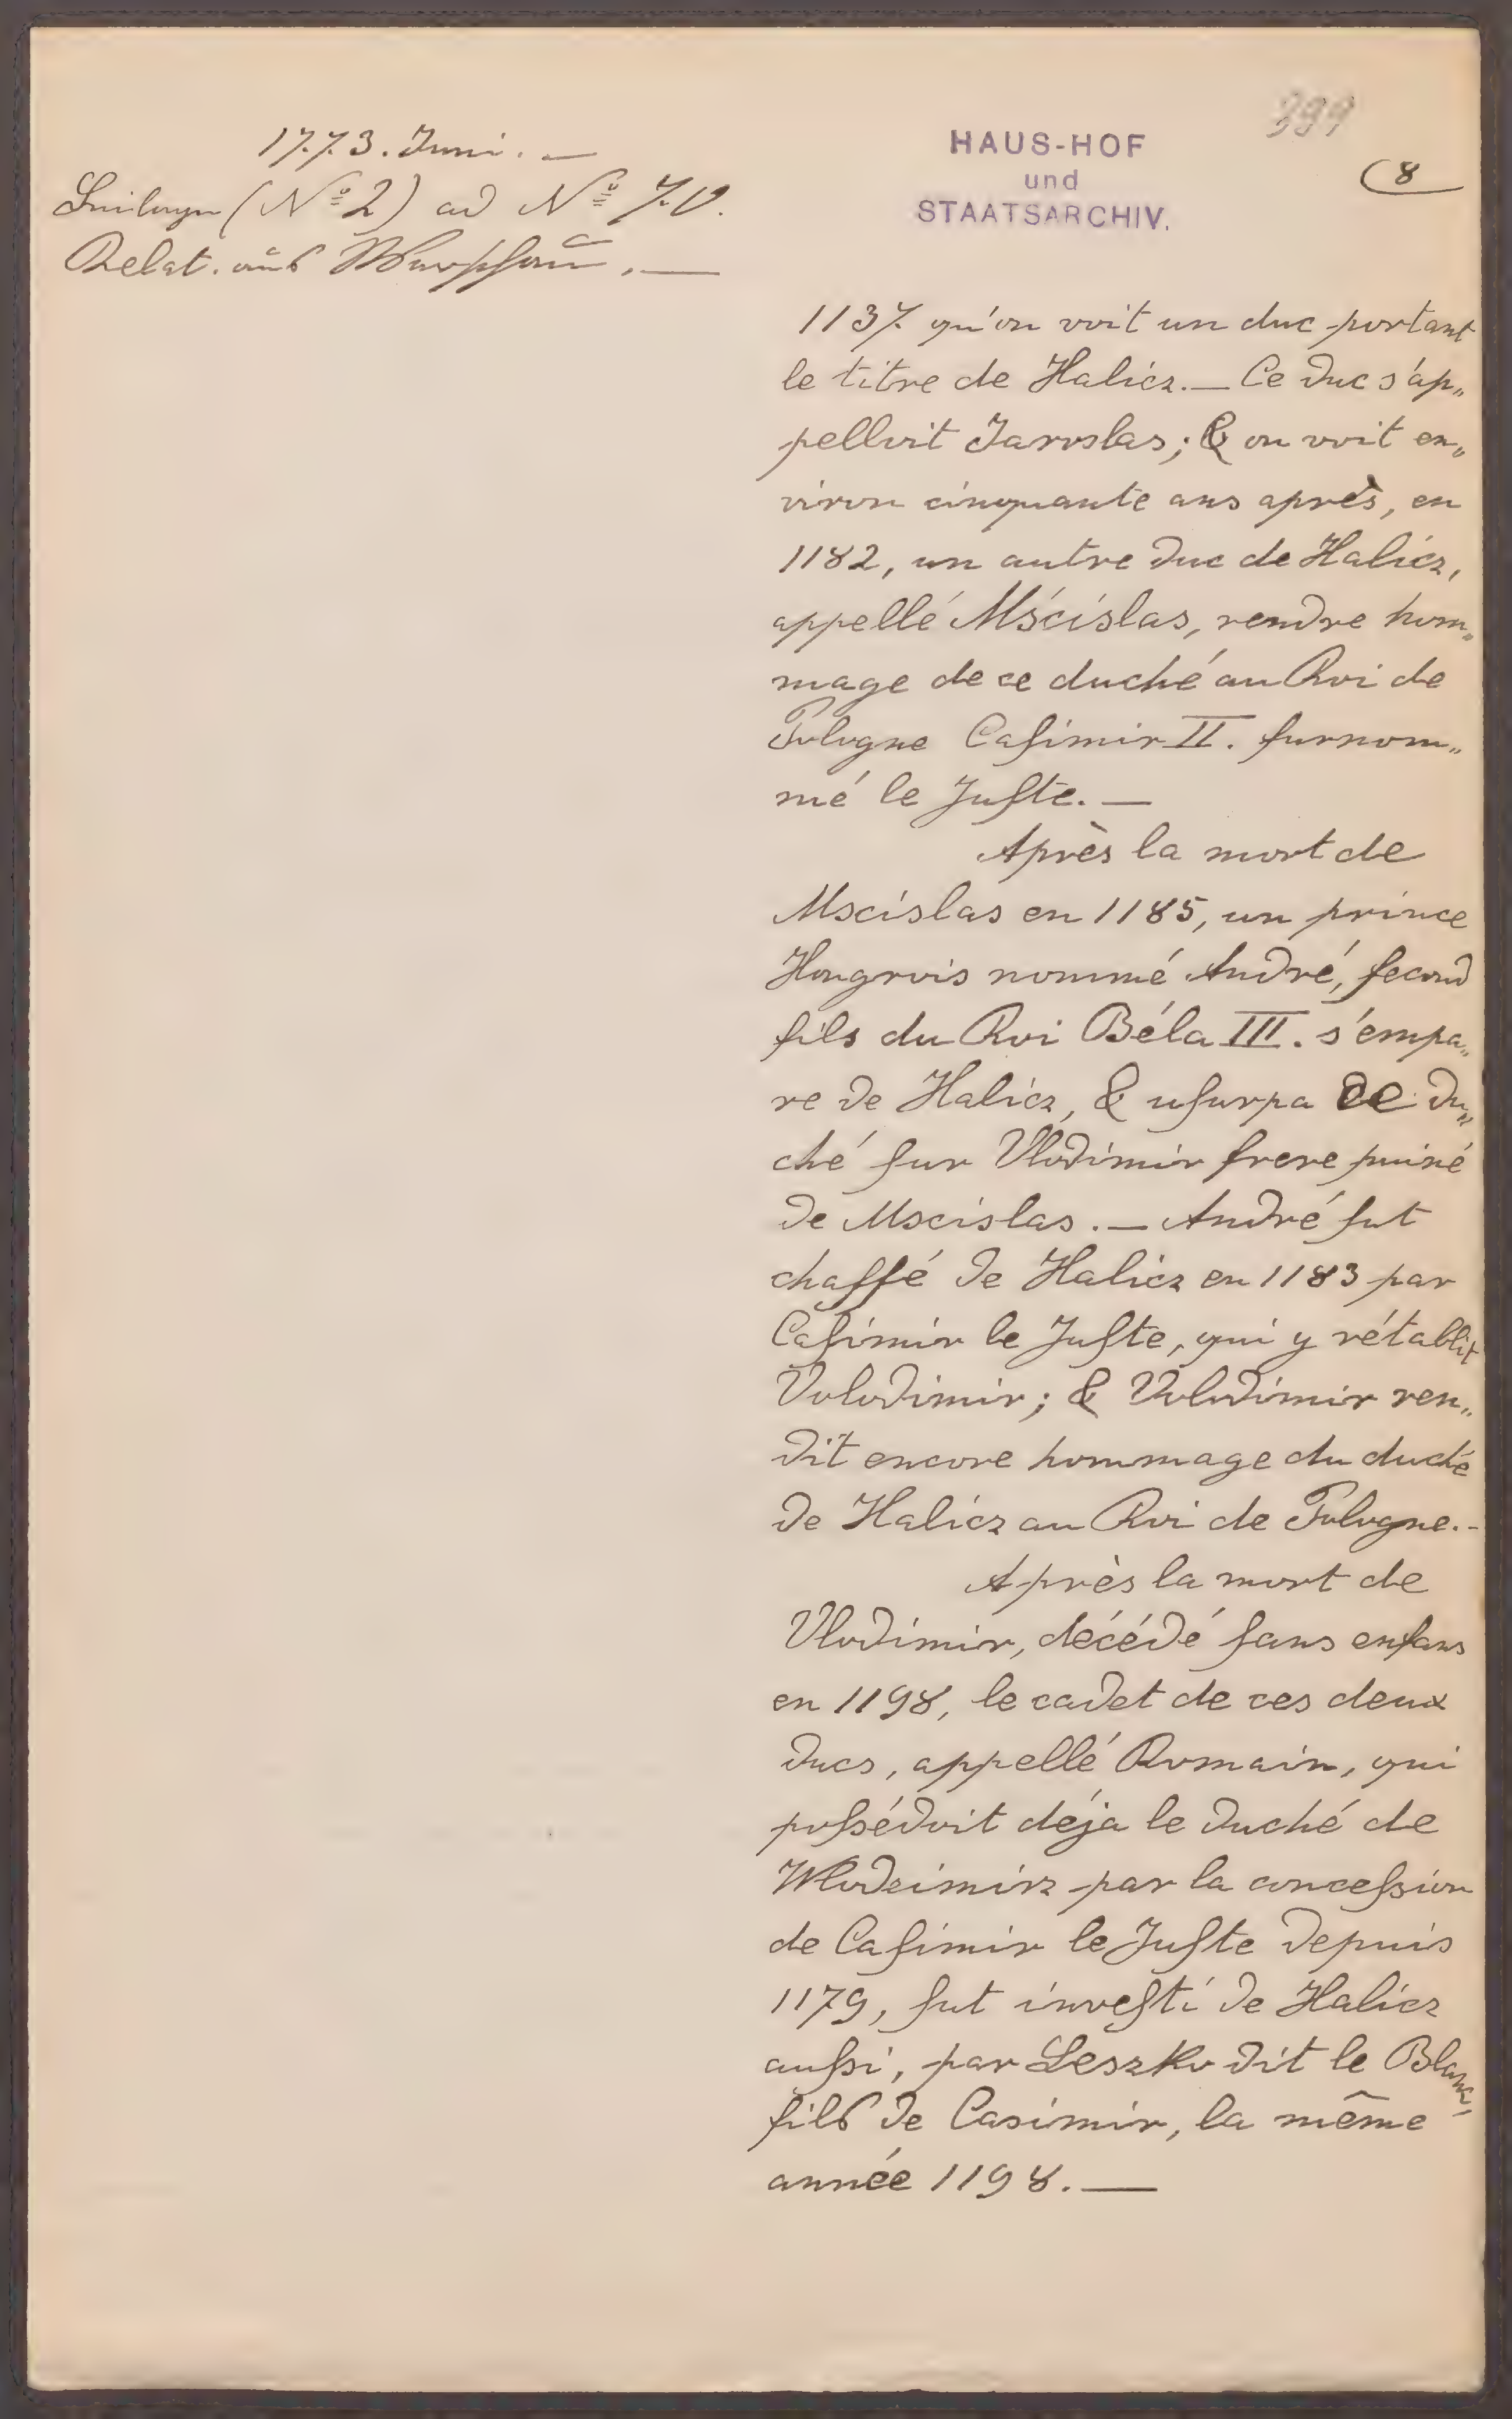 1773. Juni. —
Beilage (Nº 2) ad Nº 7. V.
Relat. aus Warschau. —
399
HAUS-HOF
und
STAATSARCHIV.
8
1137 qu'on voit un duc portant
le titre de Halicz. — Ce duc s'ap„
pelloit Jaroslas; & on voit en„
viron cinquante ans après, en
1182, un autre duc de Halicz,
appellé Mścislas, rendre hom„
mage de ce duché au Roi de
Pologne Caſimir II. ſurnom„
mé le Juſte. —
Après la mort de
Mscislas en 1185, un prince
Hongrois nommé André, ſecond
fils du Roi Béla III. s'empa„
re de Halicz, & uſurpa ce du„
ché ſur Vlodimir frere puiné
de Mscislas. — André fut
chaſſé de Halicz en 1183 par
Caſimir le Juſte, qui y rétablit
Volodimir; & Volodimir ren„
dit encore hommage du duché
de Halicz au Roi de Pologne. -
Après la mort de
Vlodimir, décédé ſans enfans
en 1198, le cadet de ces deux
ducs, appellé Romain, qui
poſsédoit déja le duché de
Wlodzimirz par la conceſsion
de Caſimir le Juſte depuis
1179, fut inveſti de Halicz
auſsi, par Leszko dit le Blanc,
fils de Casimir, la même
année 1198. —